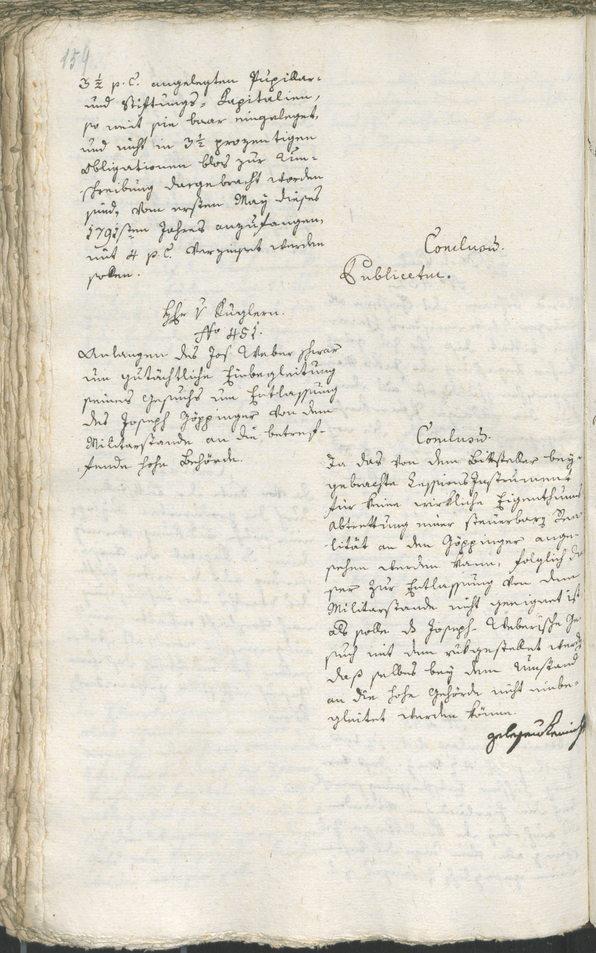 159.
3 ½ p. C. angelegten Pupillar-
und Stiftungs-Kapitalien,
so weit sie baar eingeleget,
und nicht in 3 ½ prozentigen
Obligationen blos zur Um-
schreibung dargebracht worden
sind, vom ersten May dieses
1791sten Jahres anzufangen,
mit 4 p. C. verzinset werden
sollen.
Conclusum.
Publicetur.
Hr v Kuglern.
No 451.
Anlangen des Jos. Weber
um gutächtliche Einbegleitung
seines Gesuchs um Entlassung
des Joseph Göppinger von dem
Militarstande an die betref-
fende hohe Behörde.
Conclusum.
Da das von dem Bittsteller bey-
gebrachte Cessions Instrument
für keine wirkliche Eigenthums
Abtrettung einer steuerbaren Rea-
lität an den Göppinger ange-
sehen werden kann, folglich die-
ser zur Entlassung von dem
Militarstande nicht geeignet ist
als solle das Joseph Weberische Ge-
such mit dem rückgestellet werden
daß selbes bey dem Umstand
an die hohe Behörde nicht einbe-
gleitet werden könne.